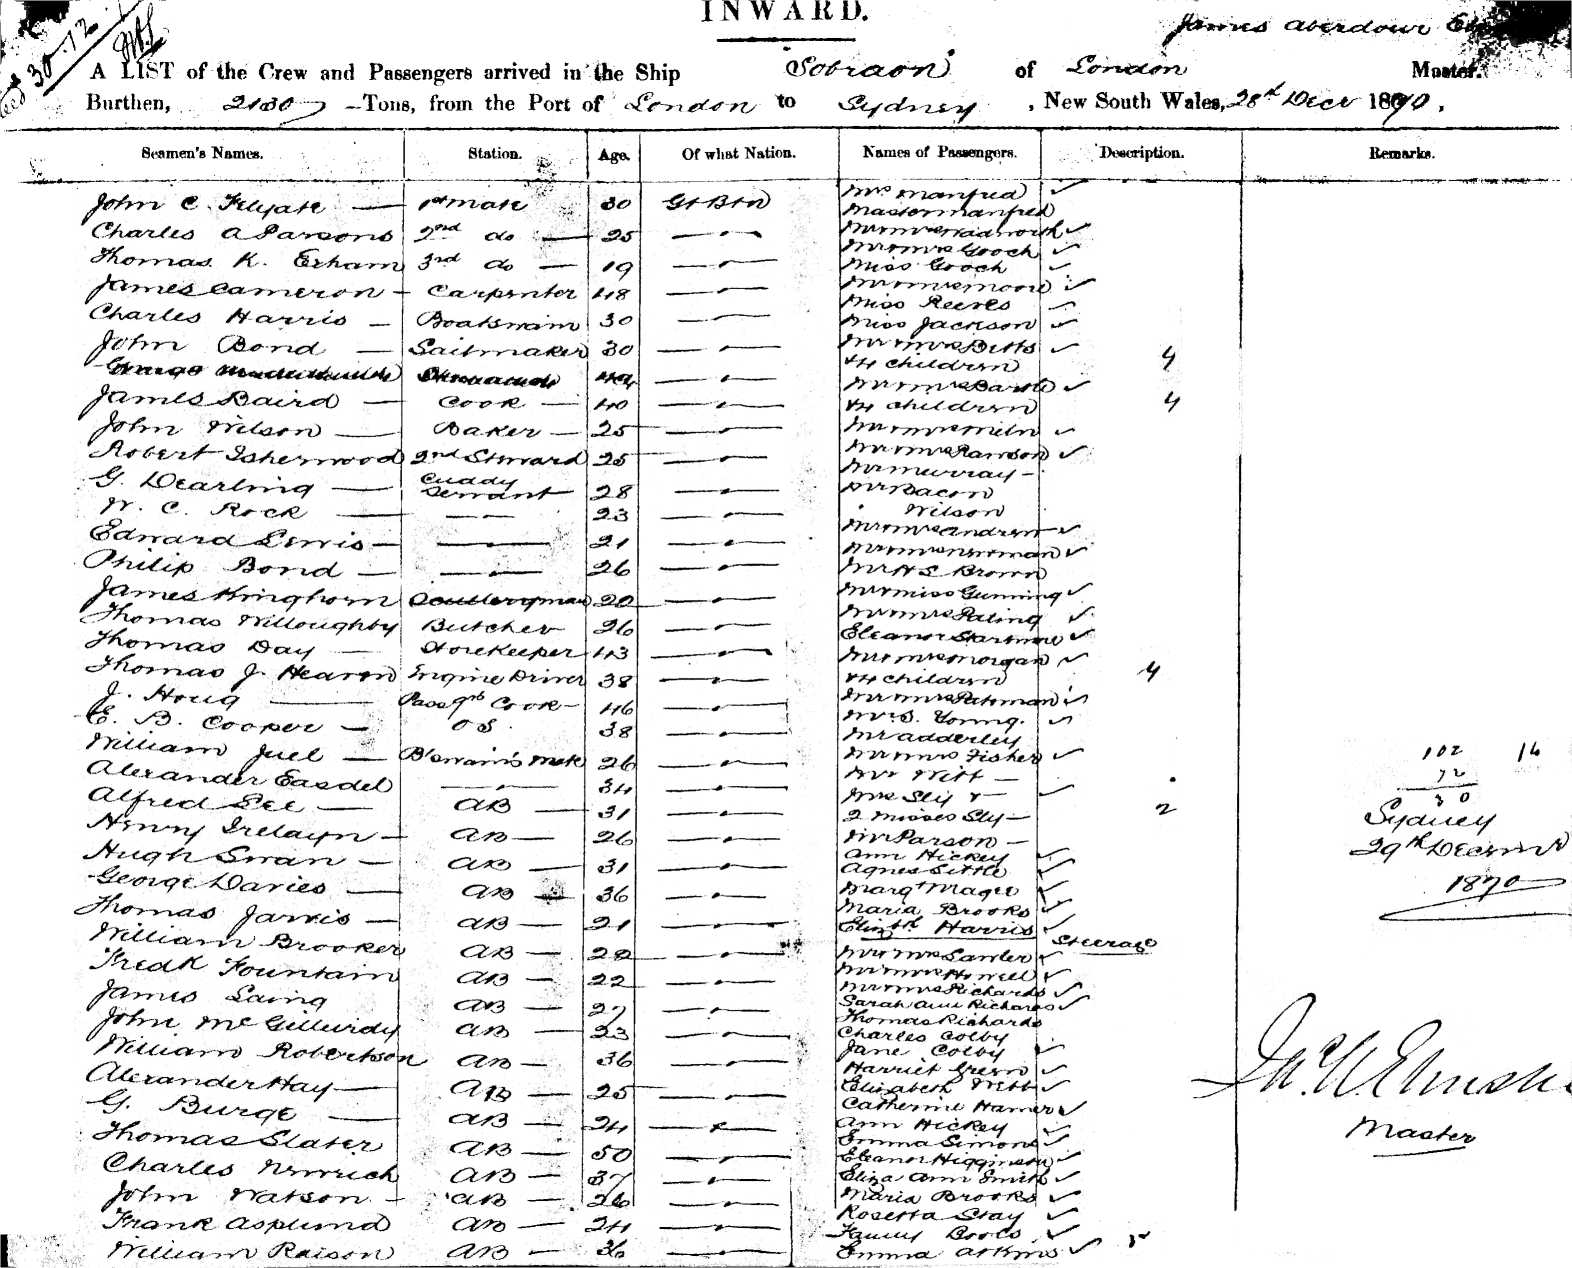 INWARD.
James Aberdour
30-12
A LIST of the Crew and Passengers arrived in the Ship "Sobraon" of London Master.
Burthen, 2130 Tons, from the Port of London to Sydney, New South Wales, 28th Decr 1870.
Seamen's Names. Station. Age. Of what Nation. Names of Passengers. Description. Remarks.
John C. 1st Mate 30 Gt Btn Mrs Manfred
Master Manfred
Charles A Parsons 2nd do 25 Mr & Mrs Wadworth
Mr & Mrs Gooch
Thomas K. Erham 3rd do 19 Miss Gooch
James Cameron Carpenter 48 Mr & Mrs Moore
Miss Reeves
Charles Harris Boatswain 30 Miss Jackson
John Bond Sailmaker 30 Mr & Mrs Betts
& 4 children 4
Mr & Mrs
James Baird Cook 40 & 4 children 4
John Wilson Baker 25 Mr & Mrs Miln
Robert Isherwood 2nd Steward 25 Mr & Mrs Rawson
Mr Murray
G. Dearling Cuddy Servant 28 Mr Bacon
W. C. Rock 23 Wilson
Edward Lewis 21 Mr & Mrs Andrew
Mr & Mrs Newman
Philip Bond 26 Mr H S Brown
James Kinghorn Sculleryman 20 Mr & Miss Gunning
Thomas Willoughby Butcher 26 Mr & Mrs Paling
Eleanor
Thomas Day Storekeeper 43 Mr & Mrs Morgan
Thomas J. Hearon Engine Driver 38 & 4 children 4
J. Houg Passgrs Cook 46 Mr & Mrs Pateman
E. B. Cooper OS. 38 Mr S. Young.
Mr Adderley
William Juel B'swain's Mate 26 Mr & Mrs Fisher
Alexander Easdel 34 Mr Witt
Mrs Sly &
Alfred Lee AB 31 2 Misses Sly 2
Henry Irelayn AB 26 Mr Parson
Hugh Swan AB 31 Ann Hickey
Agnes Little
George Davies AB 36 Margt Magee
Thomas Jarvis AB 21 Maria Brooks
Elizth Harris
William Brooker AB 22 Steerage
Mr & Mrs Sawler
Fredk Fountain AB 22 Mr & Mrs Howell
Mr & Mrs Richards
James Laing AB 27 Sarah Ann Richards
Thomas Richards
John McGillivrdy AB 23 Charles Colby
Jane Colby
William Robertson AB 36 Harriet Green
Alexander Hay AB 25 Elizabeth Witt
Catherine Hamer
G. Burge AB 24 Ann Hickey
Thomas Slater AB 50 Emma Simons
Eleanor Higginson
Charles AB 37 Eliza Ann Smith
John Watson AB 26 Maria Brooks
Rosetta Stay
Frank Asplund AB 24 Fanny
William Raison AB 36 Emma Atkins
102 16
72
30
Sydney
29th December
1870
Master